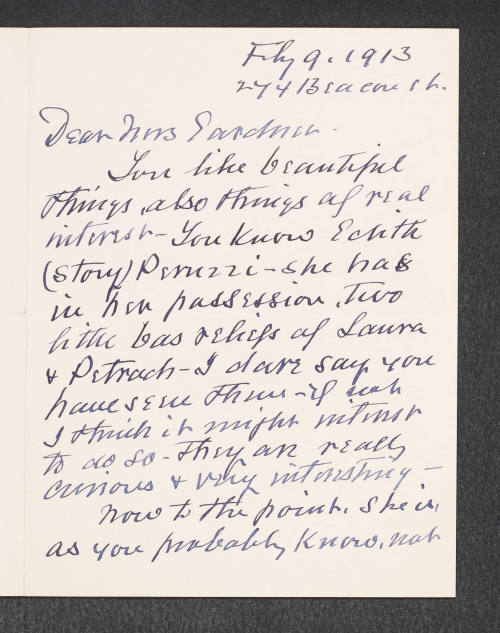 Feby 9. 1913
274 Beacon St.
Dear Mrs Gardner.
You like beautiful
things, also things of real
interest - You know Edith
(Story) Peruzzi - she has
in her possession, two
little bas reliefs of Laura
& Petrach - I dare say you
have seen them - if not
I think it might interest
to do so - They are really
curious & very interesting -
Now to the point. She is,
as you probably know, not